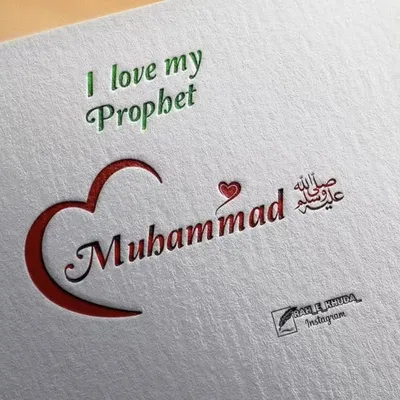 I love my
Prophet
Muhammad ﷺ
RAH_E_KHUDA_
Instagram